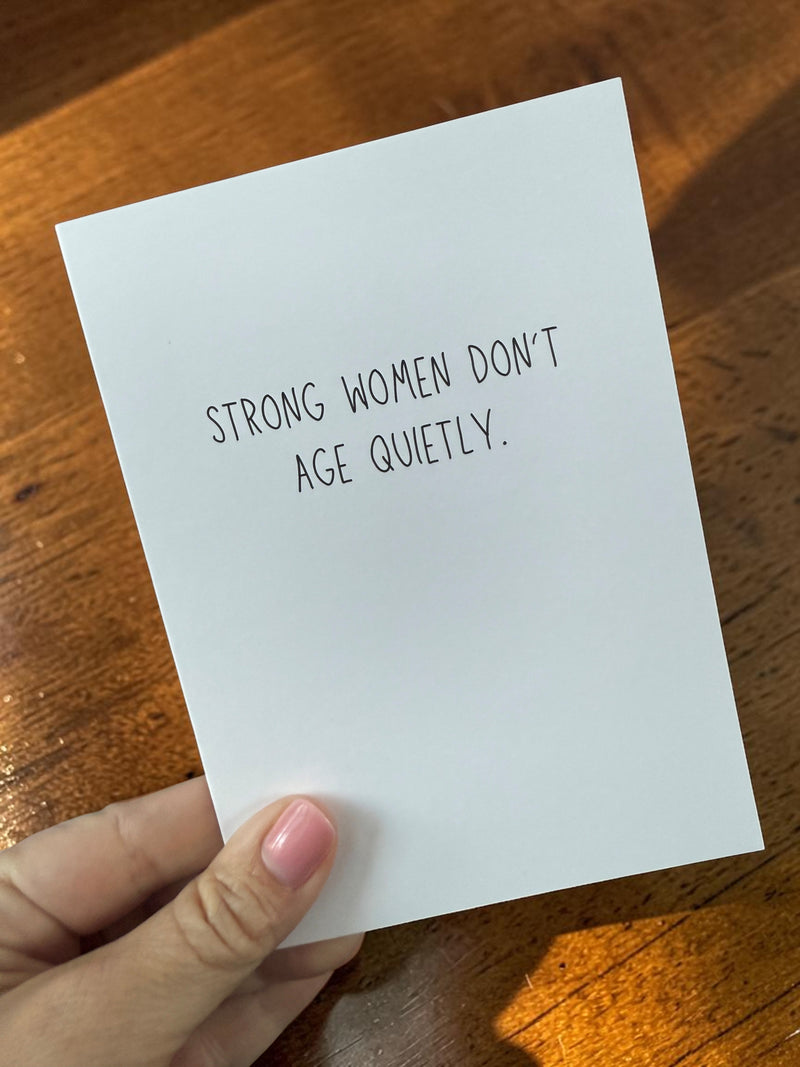 STRONG WOMEN DON'T
AGE QUIETLY.